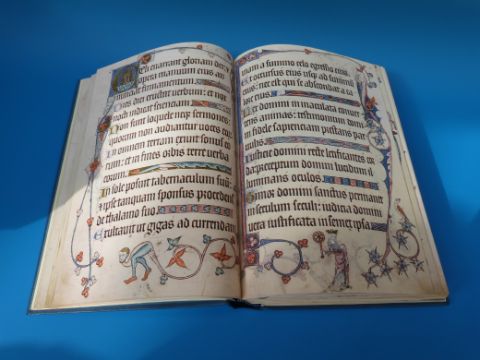 eli enarrant gloriam dei et
opera manuum eius an
nunciat firmamentum
Dies diei eructat uerbum: et nox
nocti indicat scientiam
Non sunt loquele neq sermones
quorum non audiantur uoces eor
In omnem terram exiuit sonus eo
rum: et in fines orbis terre uerba
eorum
In sole posuit tabernaculum suu
et ipse tanquam sponsus procedens
de thalamo suo
Exultauit ut gigas ad currendam
uiam a summo celo egressio eius
Et occursus eius usq ad summum
eius: nec est qui se abscondat a ca
lore eius
Lex domini inmaculata conuer
tens animas: testimonium domi
ni fidele sapienciam prestans par
uulis
Iusticie domini recte letificantes cor
da: preceptum domini lucidum il
luminans oculos
Timor domini sanctus permanet
in seculum seculi: iudicia domini
uera iustificata in semet ipsa